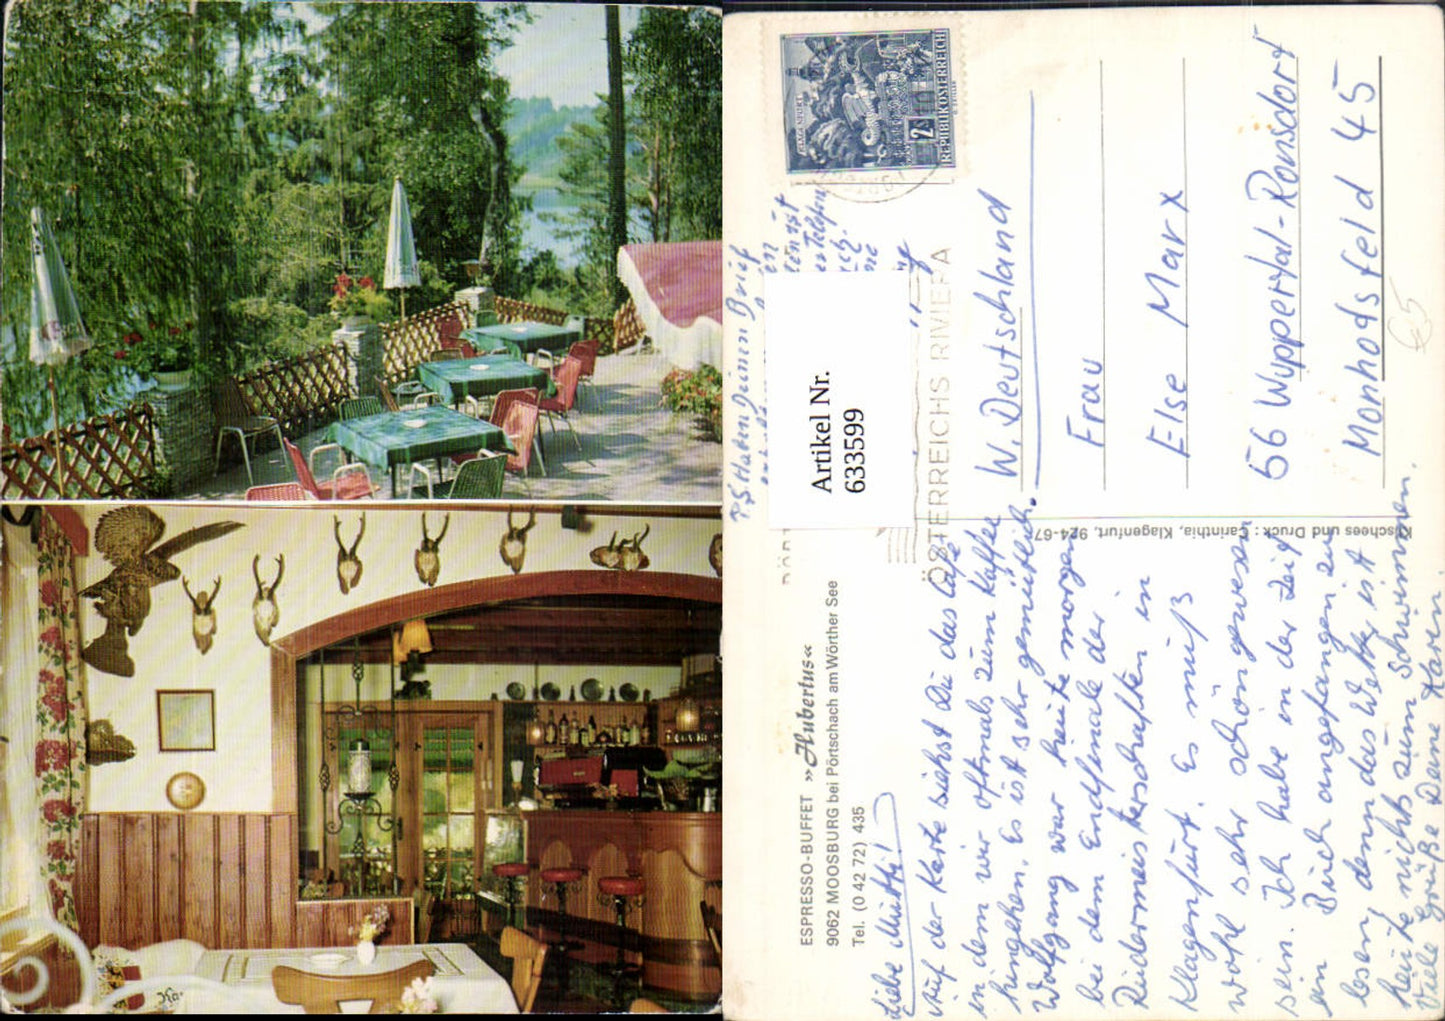 KLAGENFURT
2S
REPUBLIK ÖSTERREICH
ÖSTERREICHS RIVIERA
Artikel Nr.
633599
ESPRESSO-BUFFET »Hubertus«
9062 MOOSBURG bei Pörtschach am Wörther See
Tel. (0 42 72) 435
Klischees und Druck: Carinthia, Klagenfurt, 924-67
W. Deutschland
Frau
Else Marx
56 Wuppertal-Ronsdorf
Monhodsfeld 45
€5
Liebe Mutti!
Auf der Karte siehst Du das Café
in dem wir oftmals zum Kaffee
hingehen. Es ist sehr gemütlich.
Wolfgang war heute morgen
bei dem Endfinale der
Rudermeisterschaften in
Klagenfurt. Es muß
wohl sehr schön gewesen
sein. Ich habe in der Zeit
ein Buch angefangen zu
lesen, denn das Wetter ist
heute nichts zum Schwimmen.
Viele Grüße Deine Karin.
P.S. Haben Deinen Brief